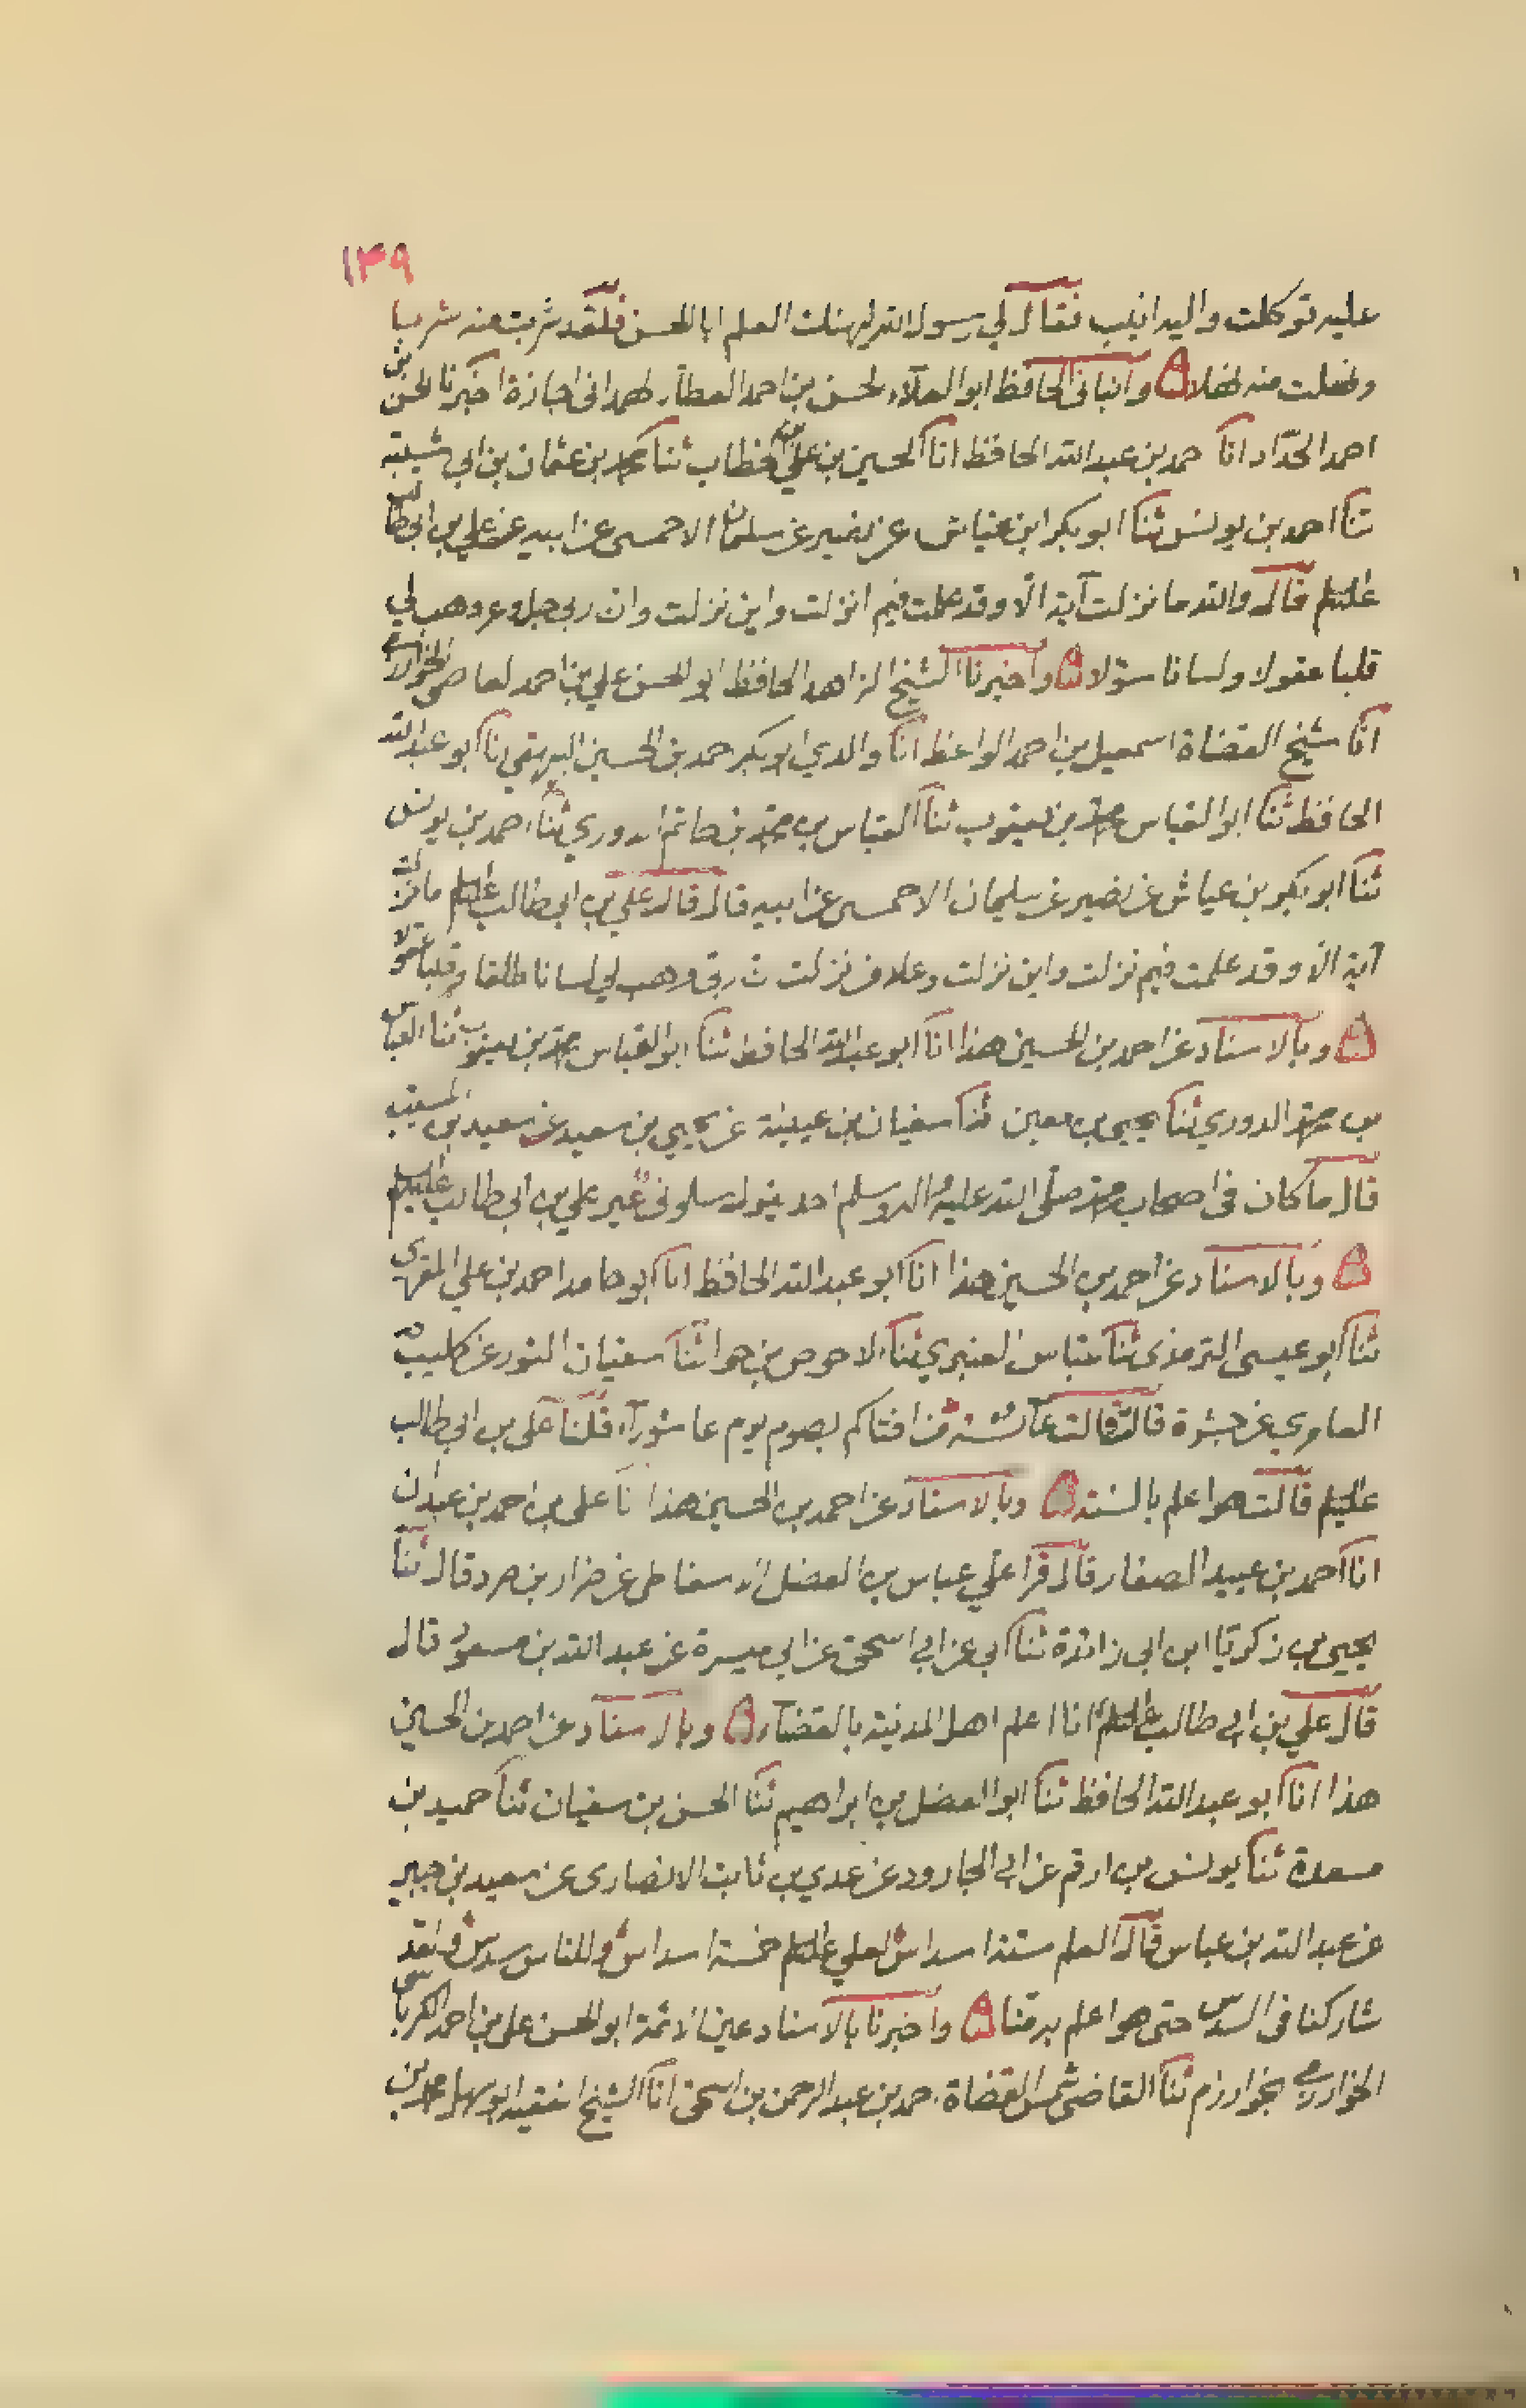 ١٣٩
عليه توكلت واليه انيب فقال لي رسول الله ليهنك العلم ابا الحسن فلقد شربت منه شربا
ونهلت منه نهلا وانباني الحافظ ابو العلاء الحسن بن احمد العطار الهمداني اجازة اخبرنا الحسن بن
احمد الحداد انا احمد بن عبد الله الحافظ انا الحسين بن علي بن خطاب ثنا محمد بن عثمان بن ابي شيبة
ثنا احمد بن يونس ثنا ابو بكر ابن عياش عن نصير عن سليمان الاحمسى عن ابيه عن علي بن ابي طالب
عليه السلم قال والله ما نزلت آية الا وقد علمت فيم انزلت واين نزلت وان ربي جل وعز وهب لي
قلبا عقولا ولسانا سؤلا واخبرنا الشيخ الزاهد الحافظ ابو الحسن علي بن احمد العاصمى الخوارزمي
انا شيخ القضاة اسمعيل بن احمد الواعظ انا والدي ابو بكر احمد بن الحسين البيهقي انا ابو عبد الله
الحافظ ثنا ابو العباس محمد بن يعقوب ثنا العباس بن محمد بن حاتم الدوري ثنا احمد بن يونس
ثنا ابو بكر بن عياش عن نصير عن سليمان الاحمسى عن ابيه قال قال علي بن ابي طالب عليه السلم ما نزلت
آية الا وقد علمت فيم نزلت واين نزلت وعلا من نزلت ان ربي وهب لي لسانا طلقا وقلبا عقولا
وبالاسناد عن احمد بن الحسين هذا انا ابو عبد الله الحافظ ثنا ابو العباس محمد بن يعقوب ثنا العباس
بن محمد الدوري ثنا يحيى بن معين ثنا سفيان بن عيينة عن يحيي بن سعيد عن سعيد بن المسيب
قال ما كان في اصحاب محمد صلى الله عليه واله وسلم احد يقول سلوني غير علي بن ابي طالب عليه السلم
وبالاسناد عن احمد بن الحسين هذا انا ابو عبد الله الحافظ انا ابو حامد احمد بن علي المقري
ثنا ابو عيسى الترمذي ثنا عباس العنبري ثنا الاحوص بن جواب ثنا سفيان الثوري عن كليب
العامري عن جسرة قالت قالت عائشة من افتاكم بصوم يوم عاشوراء قلنا علي بن ابي طالب
عليه السلم قالت هو اعلم بالسنة وبالاسناد عن احمد بن الحسين هذا انا علي بن احمد بن عبدان
انا احمد بن عبيد الصفار قال قرا علي عباس بن الفضل الاسفاطى عن ضرار بن صرد قال ثنا
يحيى بن زكريا ابن ابي زائدة ثنا ابي عن ابي اسحق عن ابي ميسرة عن عبد الله بن مسعود قال
قال علي بن ابي طالب عليه السلم انا اعلم اهل المدينة بالقضاء وبالاسناد عن احمد بن الحسين
هذا انا ابو عبد الله الحافظ ثنا ابو الفضل بن ابراهيم ثنا الحسن بن سفيان ثنا حميد بن
مسعدة ثنا يونس بن ارقم عن ابي الجارود عن عدي بن ثابت الانصاري عن سعيد بن جبير
عن عبد الله بن عباس قال العلم ستة اسداس لعلي عليه السلم خمسة اسداس وللناس سدس ولقد
شاركنا في السدس حتى هو اعلم به منا واخبرنا بالاسناد عين الائمة ابو الحسن علي بن احمد الكرباسي
الخوارزمي بخوارزم ثنا القاضي شمس القضاة احمد بن عبد الرحمن بن اسحق انا الشيخ الفقيه ابو سهل محمد بن